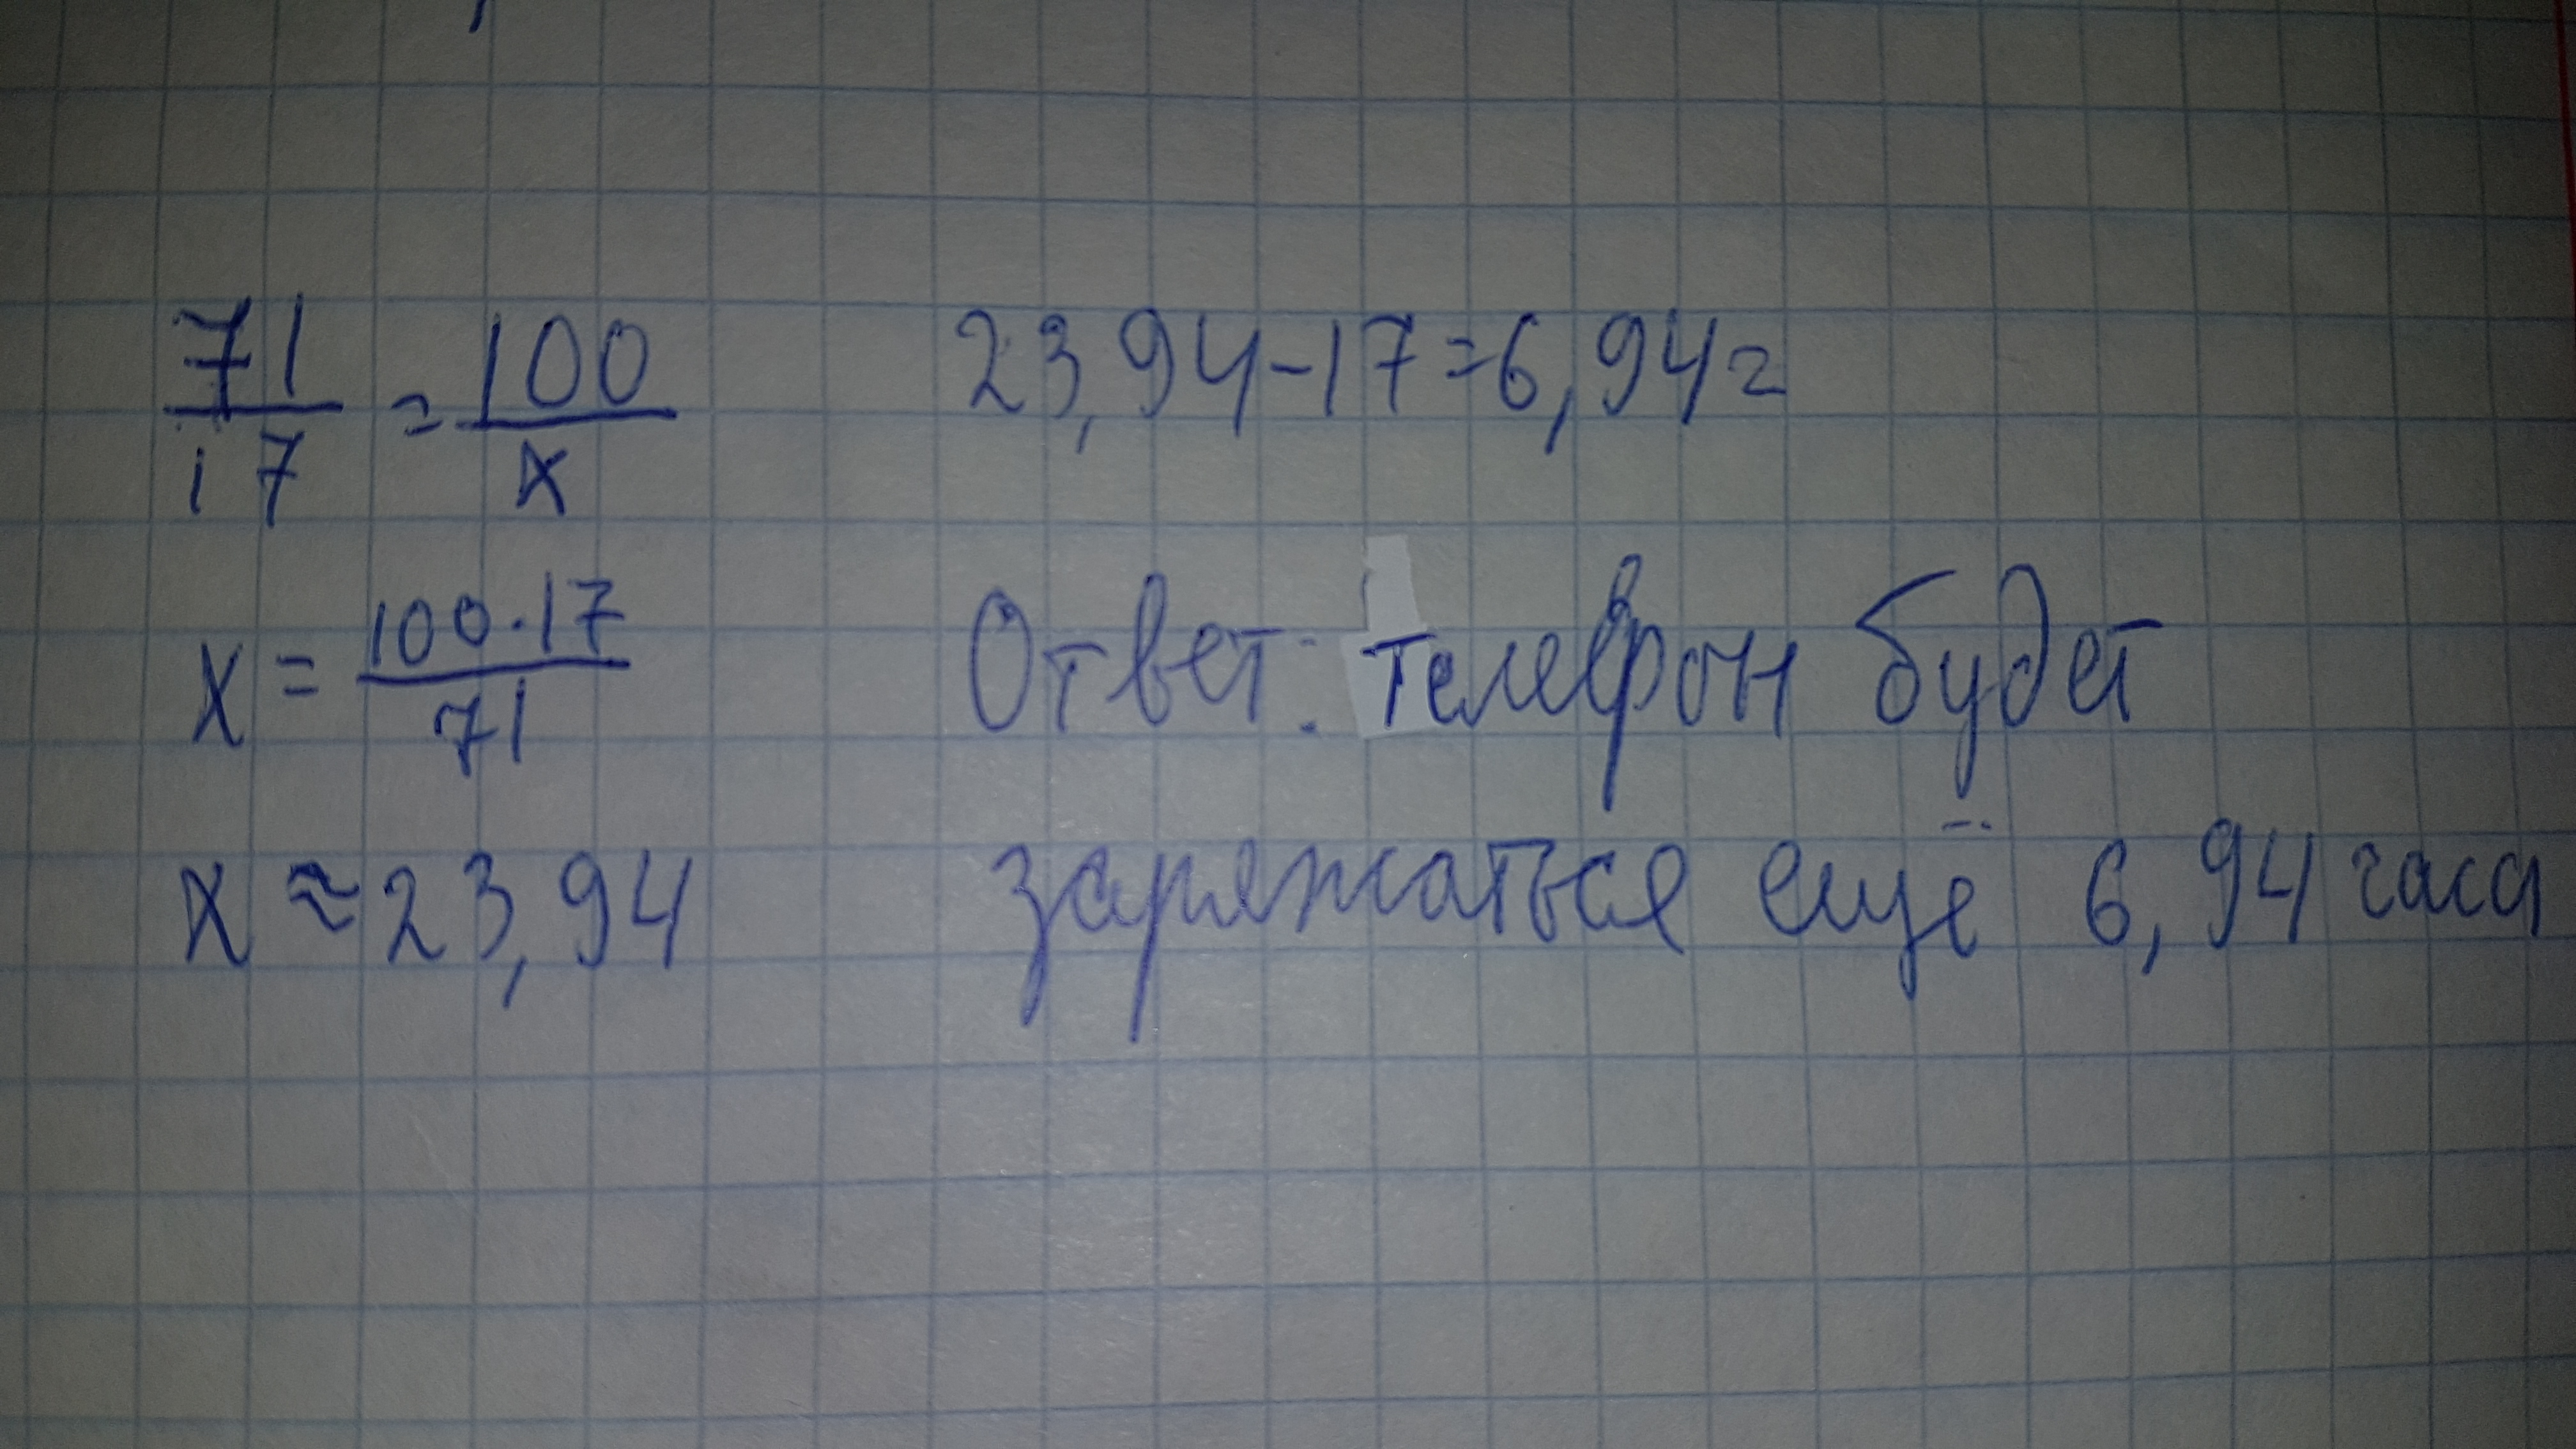 71/17 = 100/x
x = 100·17/71
x ≈ 23,94
23,94-17=6,94ч
Ответ: телефон будет
заряжаться ещё 6,94 часа